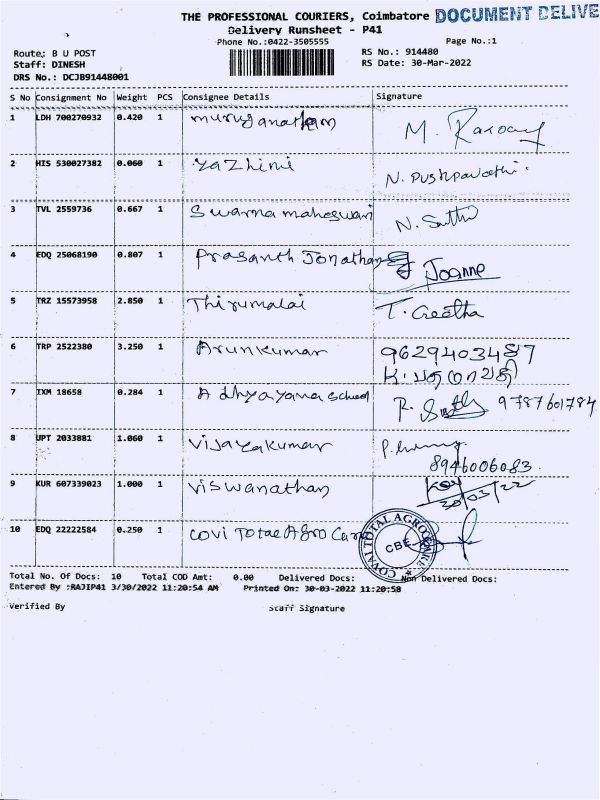 THE PROFESSIONAL COURIERS, Coimbatore DOCUMENT DELIVE
Delivery Runsheet - P41
Phone No.:0422-3505555 Page No.:1
Route; B U POST RS No.: 914480
Staff: DINESH RS Date: 30-Mar-2022
DRS No.: DCJB91448001
S No Consignment No Weight PCS Consignee Details Signature
1 LDH 700270932 0.420 1 muruganatham M.
2 HIS 530027382 0.060 1 Yazhini N. Pushpavathi.
3 TVL 2559736 0.667 1 Swarna maheswari N.
4 EDQ 25068190 0.807 1 Prasanth Jonathan Joanne
5 TRZ 15573958 2.850 1 Thirumalai T. Geetha
6 TRP 2522380 3.250 1 Arunkumar 9629403487
7 TXM 18658 0.284 1 Adhyayana school R. 9787601784
8 UPT 2033881 1.060 1 Vijayakumar P.
8946006083
9 KUR 607339023 1.000 1 Viswanathan 30/03/22
10 EDQ 22222584 0.250 1 Covi Total Agro Care COVAI TOTAL AGRO CARE CBE
Total No. Of Docs: 10 Total COD Amt: 0.00 Delivered Docs: Non Delivered Docs:
Entered By :RAJIP41 3/30/2022 11:20:54 AM Printed On: 30-03-2022 11:20:58
Verified By Staff Signature